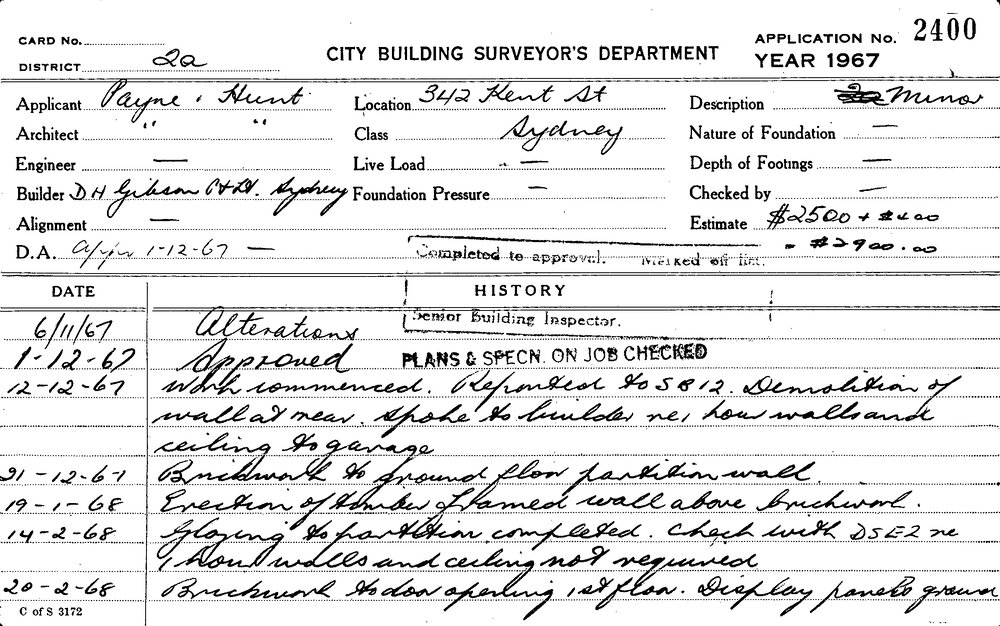 CARD No. APPLICATION No. 2400
DISTRICT 2a CITY BUILDING SURVEYOR'S DEPARTMENT YEAR 1967
Applicant Payne & Hunt Location 342 Kent St Description Minor
Architect " " Class Sydney Nature of Foundation —
Engineer — Live Load — Depth of Footings —
Builder D H Gibson P/L Sydney Foundation Pressure — Checked by —
Alignment — Estimate $2500 + $400
D.A. 1-12-67 — = $2900.00
Completed to approval. Marked off list.
DATE HISTORY
Senior Building Inspector.
6/11/67 Alterations
1-12-67 Approved PLANS & SPECN. ON JOB CHECKED
12-12-67 Work commenced. Reported to SB12. Demolition of
wall at rear. Spoke to builder re 1 hour walls and
ceiling to garage
21-12-67 Brickwork to ground floor partition wall.
19-1-68 Erection of timber framed wall above brickwork.
14-2-68 Glazing to partition completed. Check with DSE2 re
1 hour walls and ceiling not required
20-2-68 Brickwork to door opening 1st floor. Display panels ground
C of S 3172